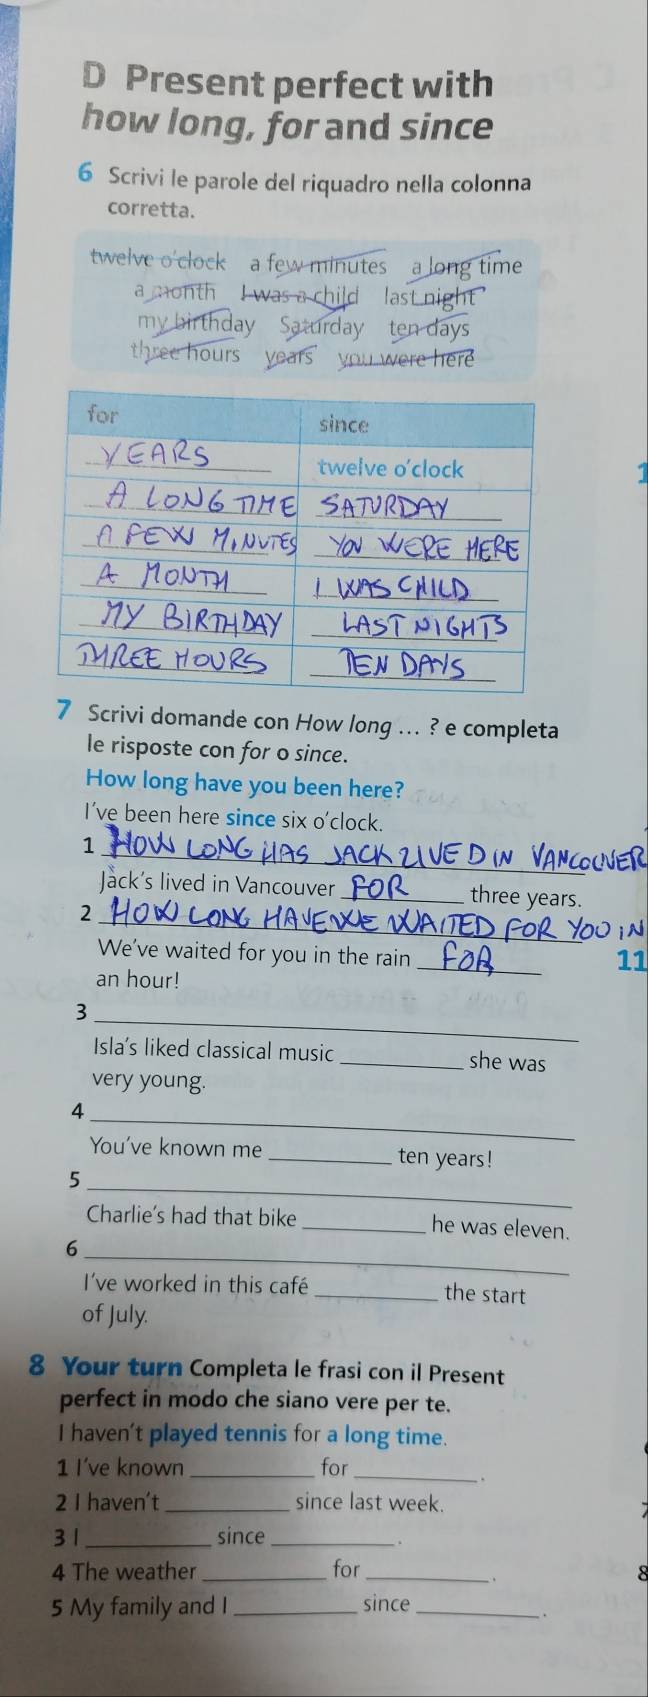 D Present perfect with
how long, for and since
6 Scrivi le parole del riquadro nella colonna
corretta.
twelve o'clock a few minutes a long time
a month I was a child last night
my birthday Saturday ten days
three hours years you were here
for since
YEARS twelve o'clock
A LONG TIME SATURDAY
A FEW MINUTES YOU WERE HERE
A MONTH I WAS CHILD
MY BIRTHDAY LAST NIGHTS
THREE HOURS TEN DAYS
7 Scrivi domande con How long ... ? e completa
le risposte con for o since.
How long have you been here?
I've been here since six o'clock.
1 HOW LONG HAS JACK LIVED IN VANCOUVER
Jack's lived in Vancouver FOR three years.
2 HOW LONG HAVE WE WAITED FOR YOU IN
We've waited for you in the rain FOR
an hour!
11
3
Isla's liked classical music ________ she was
very young.
4
You've known me ________ ten years!
5
Charlie's had that bike ________ he was eleven.
6
I've worked in this café ________ the start
of July.
8 Your turn Completa le frasi con il Present
perfect in modo che siano vere per te.
I haven't played tennis for a long time.
1 I've known ________ for ________.
2 I haven't ________ since last week.
3 I ________ since ________.
4 The weather ________ for ________.
8
5 My family and I ________ since ________.